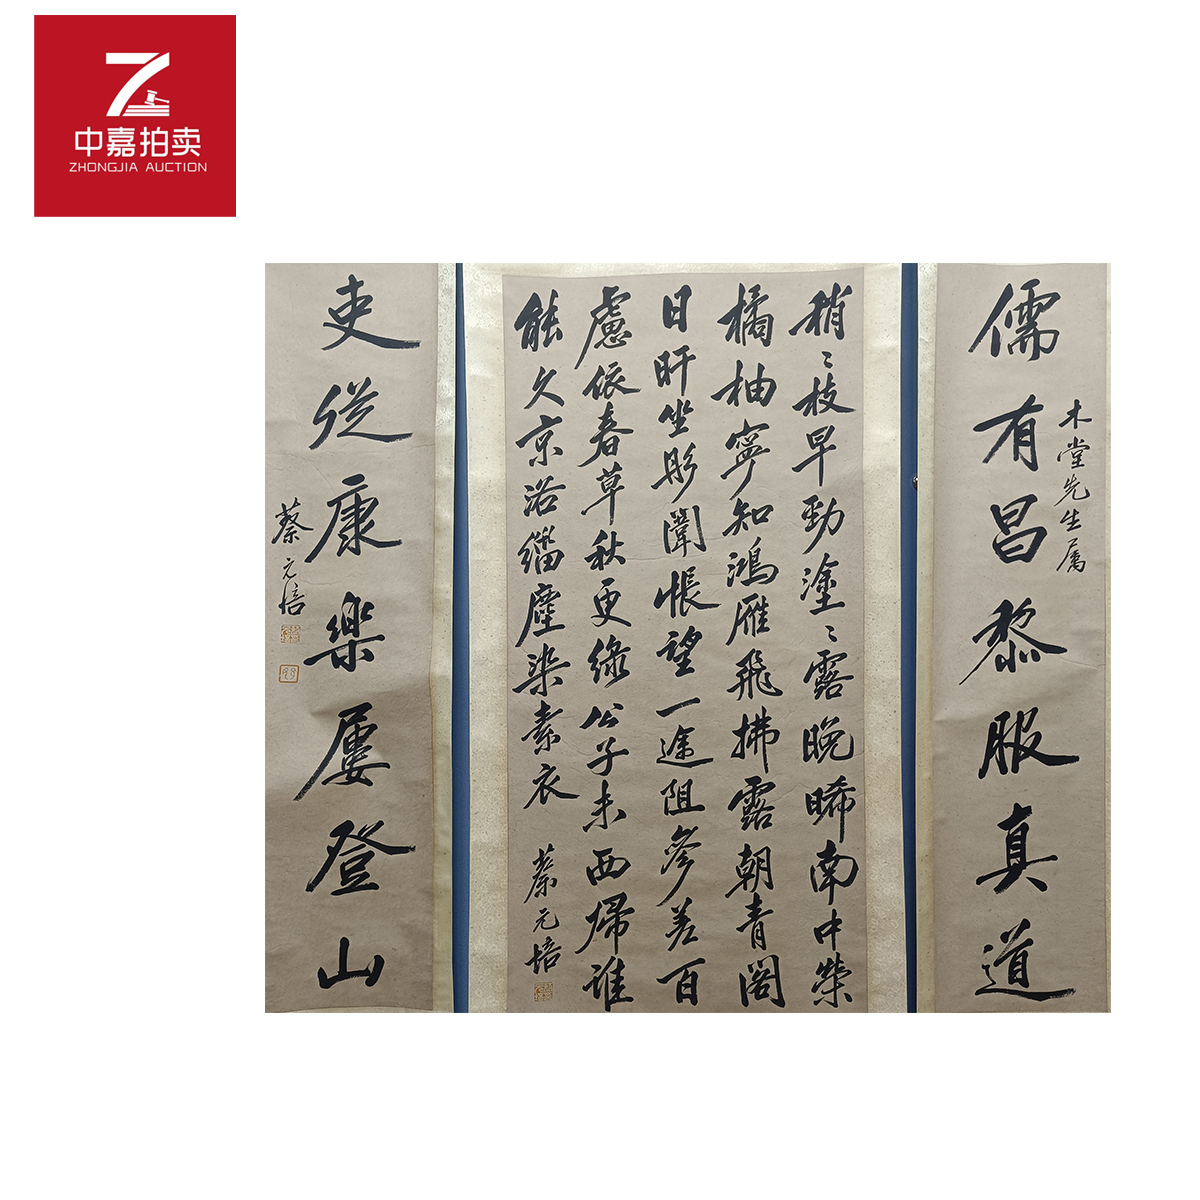 中嘉拍卖
ZHONGJIA AUCTION
木堂先生属
儒有昌黎服真道
稍〻枝早勁塗〻露晚晞南中榮
橘柚寧知鴻雁飛拂露朝青閣
日旰坐彤闈悵望一途阻參差百
慮依春草秋更綠公子未西歸誰
能久京洛緇塵染素衣
蔡元培
吏從康樂屢登山
蔡元培